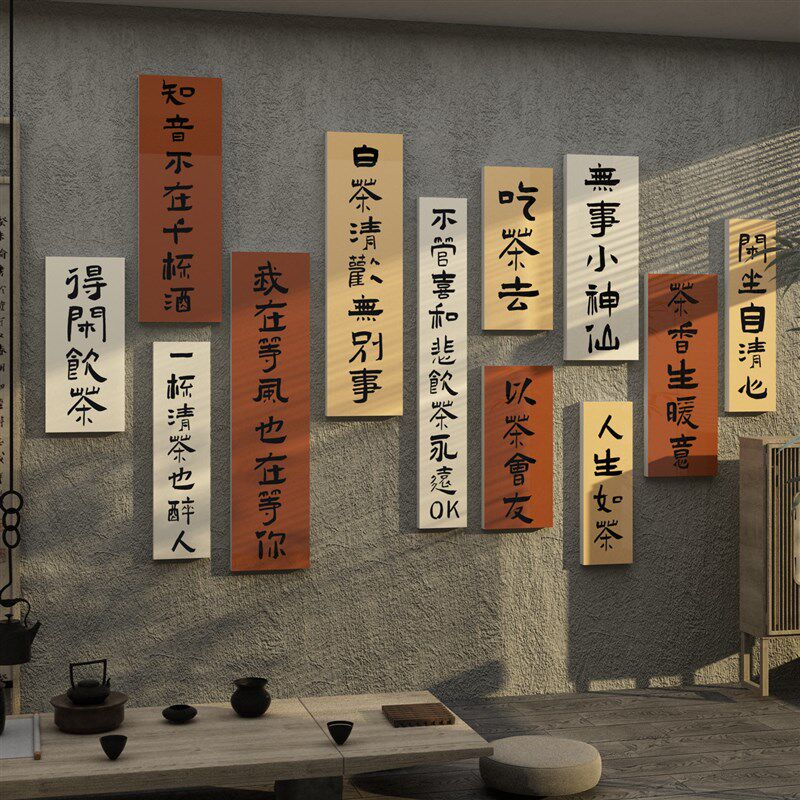 得閑飲茶
知音不在千杯酒
一杯清茶也醉人
我在等風也在等你
白茶清歡無別事
不管喜和悲飲茶永遠OK
吃茶去
以茶會友
無事小神仙
人生如茶
茶香生暖意
閑坐自清心